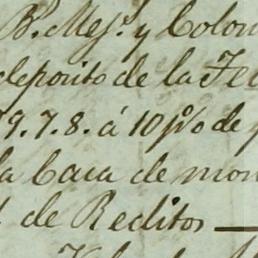 B.ª Mej.ª y Colon
deposito de la Te
9.7.8. á 10 p% de
la Caxa de mon
de Reditos